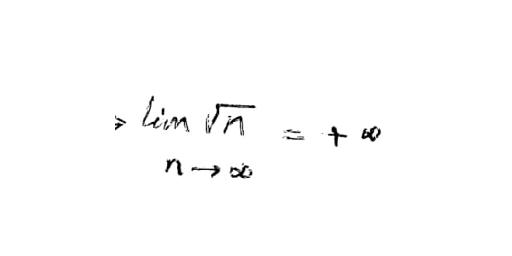 > lim √n = + ∞
n → ∞